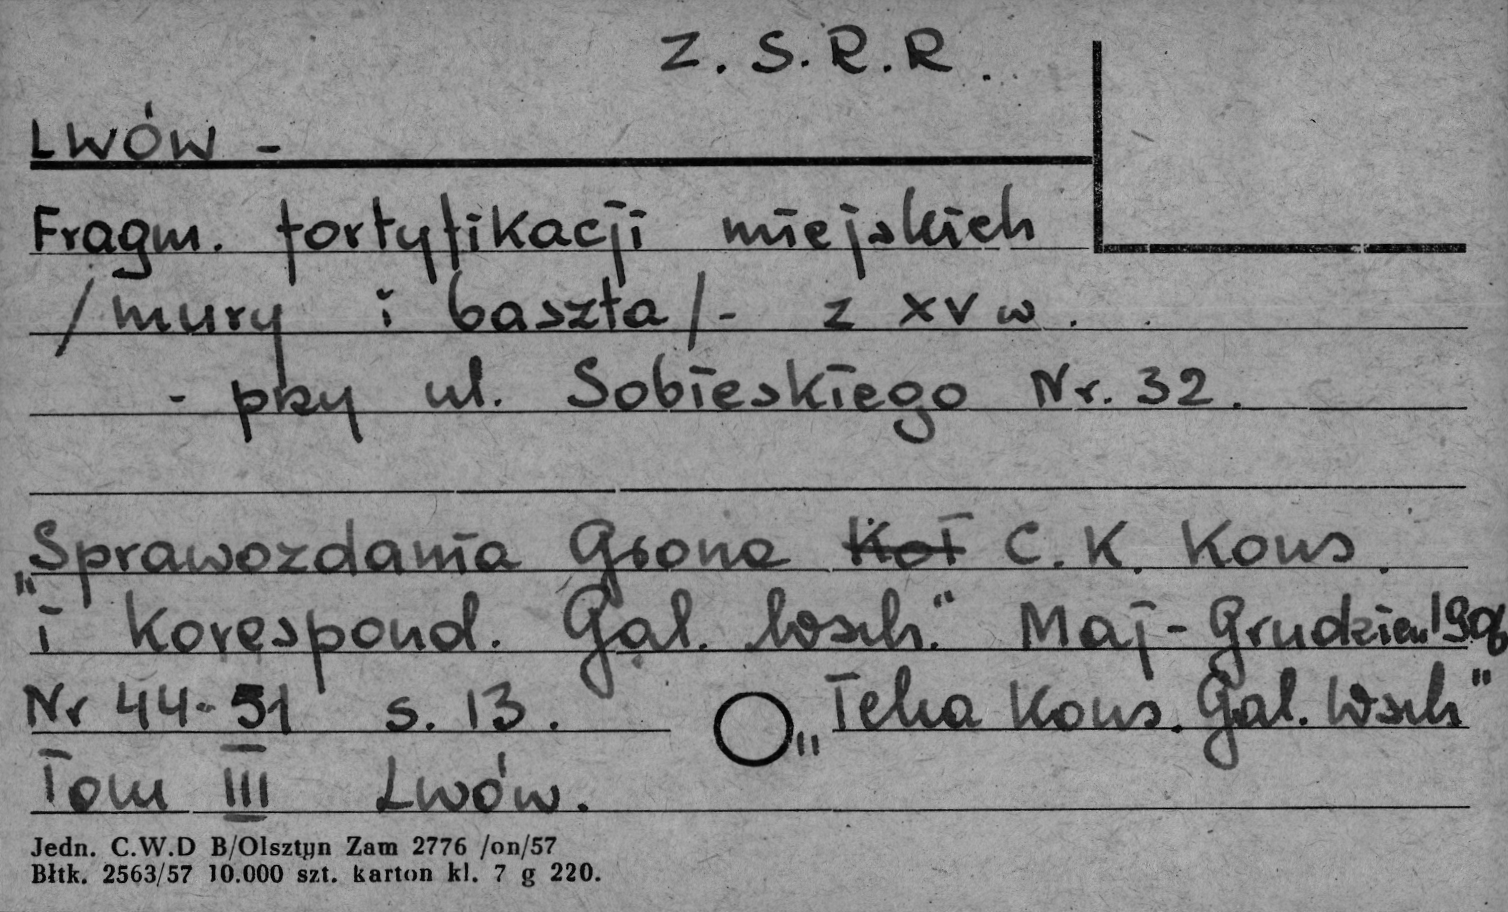 Z.S.R.R.
LWÓW -
Fragm. fortyfikacji miejskich
/mury i baszta/- z XV w.
- przy ul. Sobieskiego Nr. 32.
„Sprawozdania Grona Koł C.K. Kons.
i Korespond. Gal. Wsch." Maj-Grudzień
Nr 44-51 s. 13. „Teka Kons. Gal. Wsch"
Tom III Lwów.
Jedn. C.W.D B/Olsztyn Zam 2776 /on/57
Błtk. 2563/57 10.000 szt. karton kl. 7 g 220.